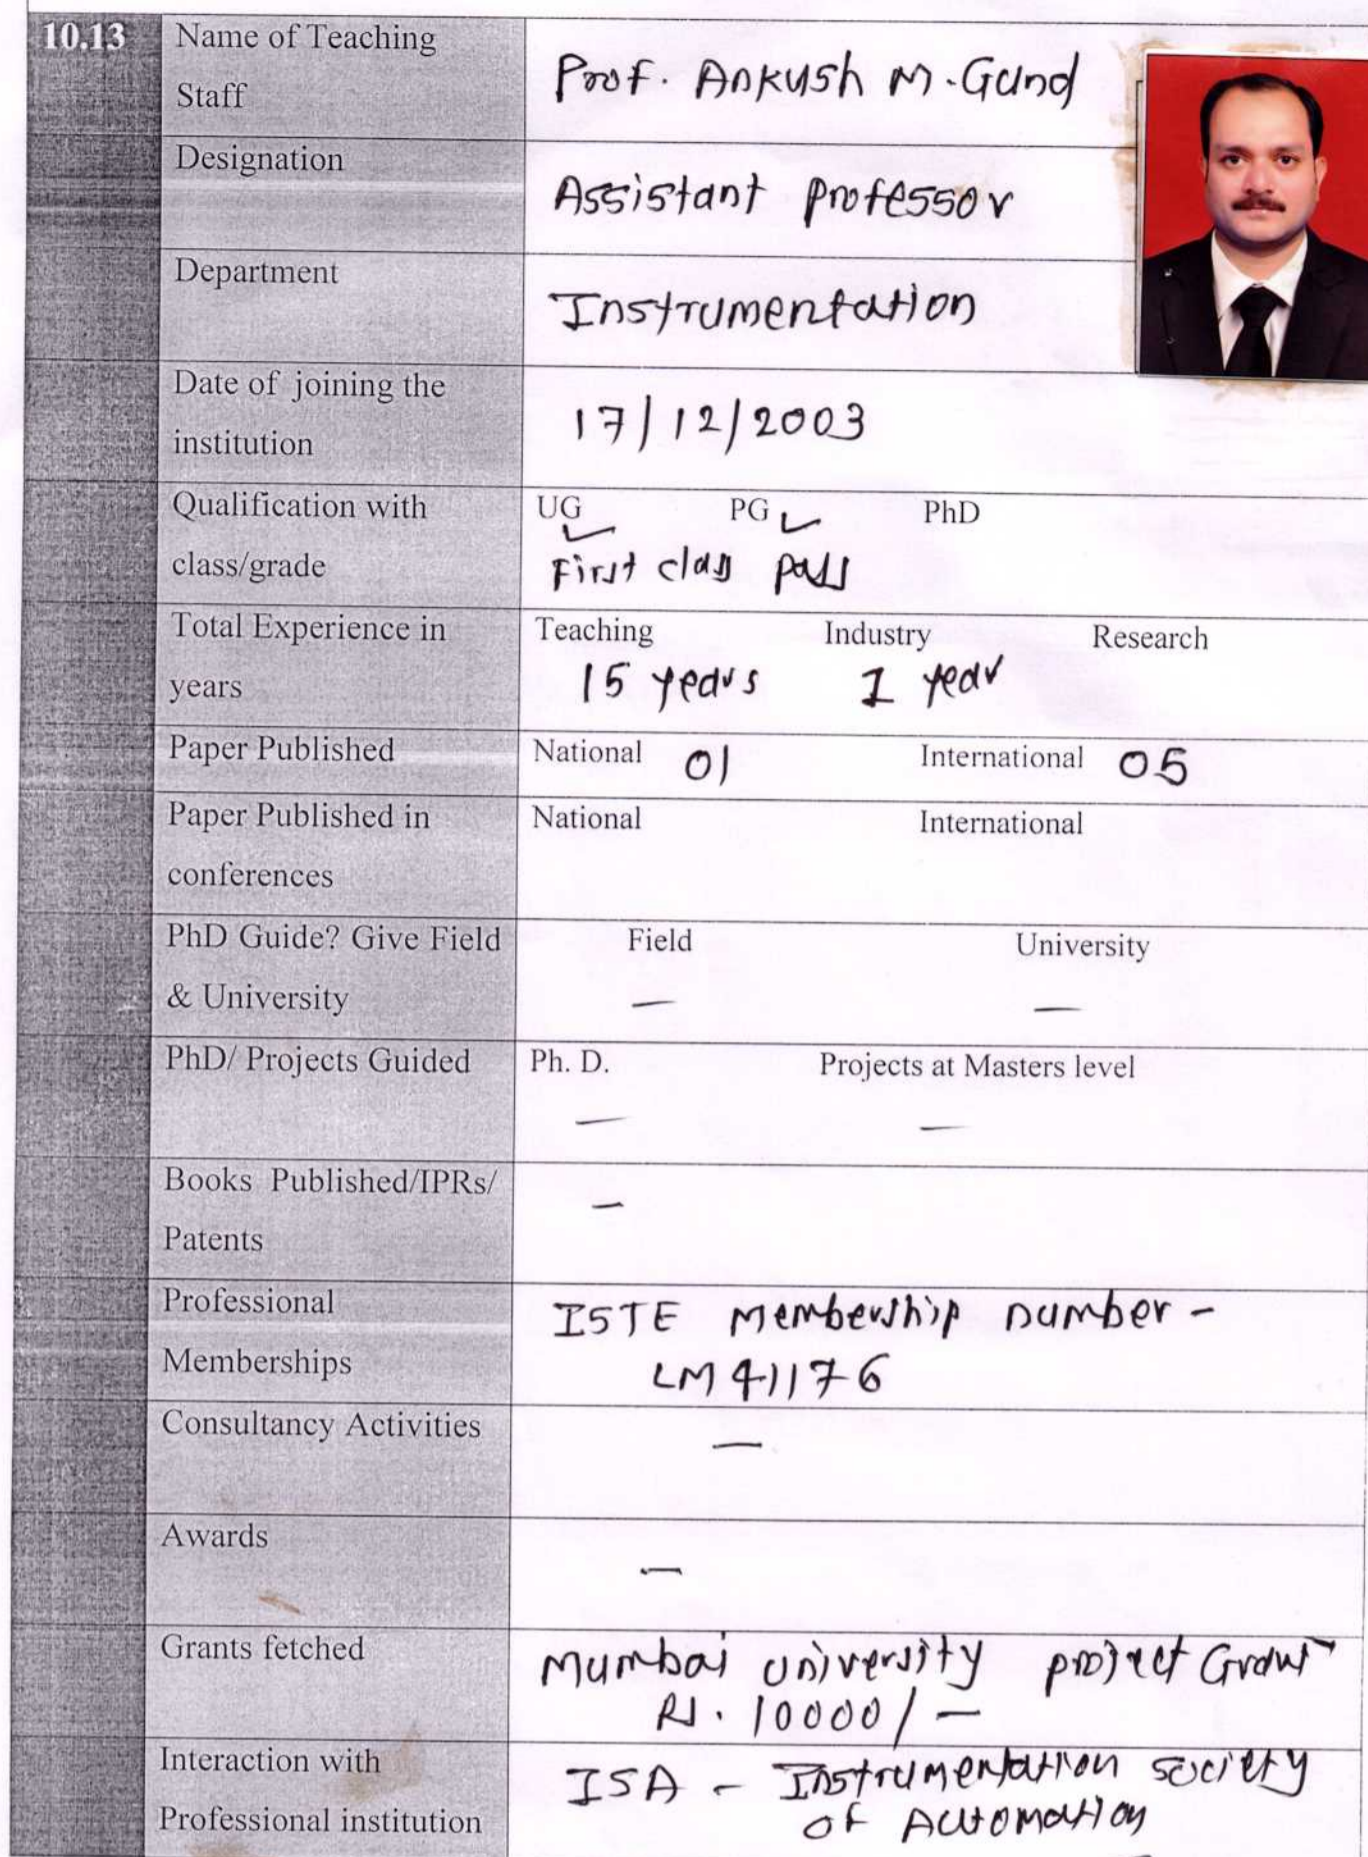 10.13 Name of Teaching
Staff
Prof. Ankush M. Gund
Designation
Assistant professor
Department
Instrumentation
Date of joining the
institution
17/12/2003
Qualification with
class/grade
UG ✓ PG ✓ PhD
First class pass
Total Experience in
years
Teaching Industry Research
15 years 1 year
Paper Published
National 01 International 05
Paper Published in
conferences
National International
PhD Guide? Give Field
& University
Field University
— —
PhD/ Projects Guided
Ph. D. Projects at Masters level
— —
Books Published/IPRs/
Patents
—
Professional
Memberships
ISTE Membership number -
LM 41176
Consultancy Activities
—
Awards
—
Grants fetched
Mumbai university project Grant
Rs. 10000/-
Interaction with
Professional institution
ISA - Instrumentation society
of Automation